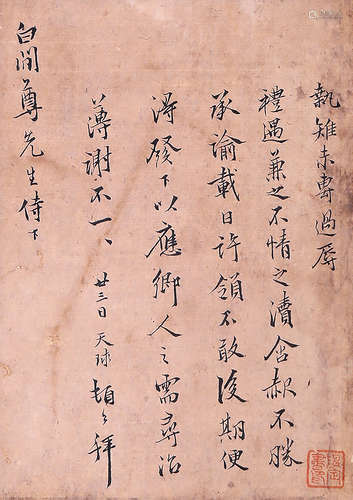 執雉未專過辱
禮遇兼之不情之瀆含赧不勝
承諭載日許領不敢後期便
淂發下以應鄉人之需尋治
薄謝不一、廿三日天球頓々拜
白閒尊先生侍下